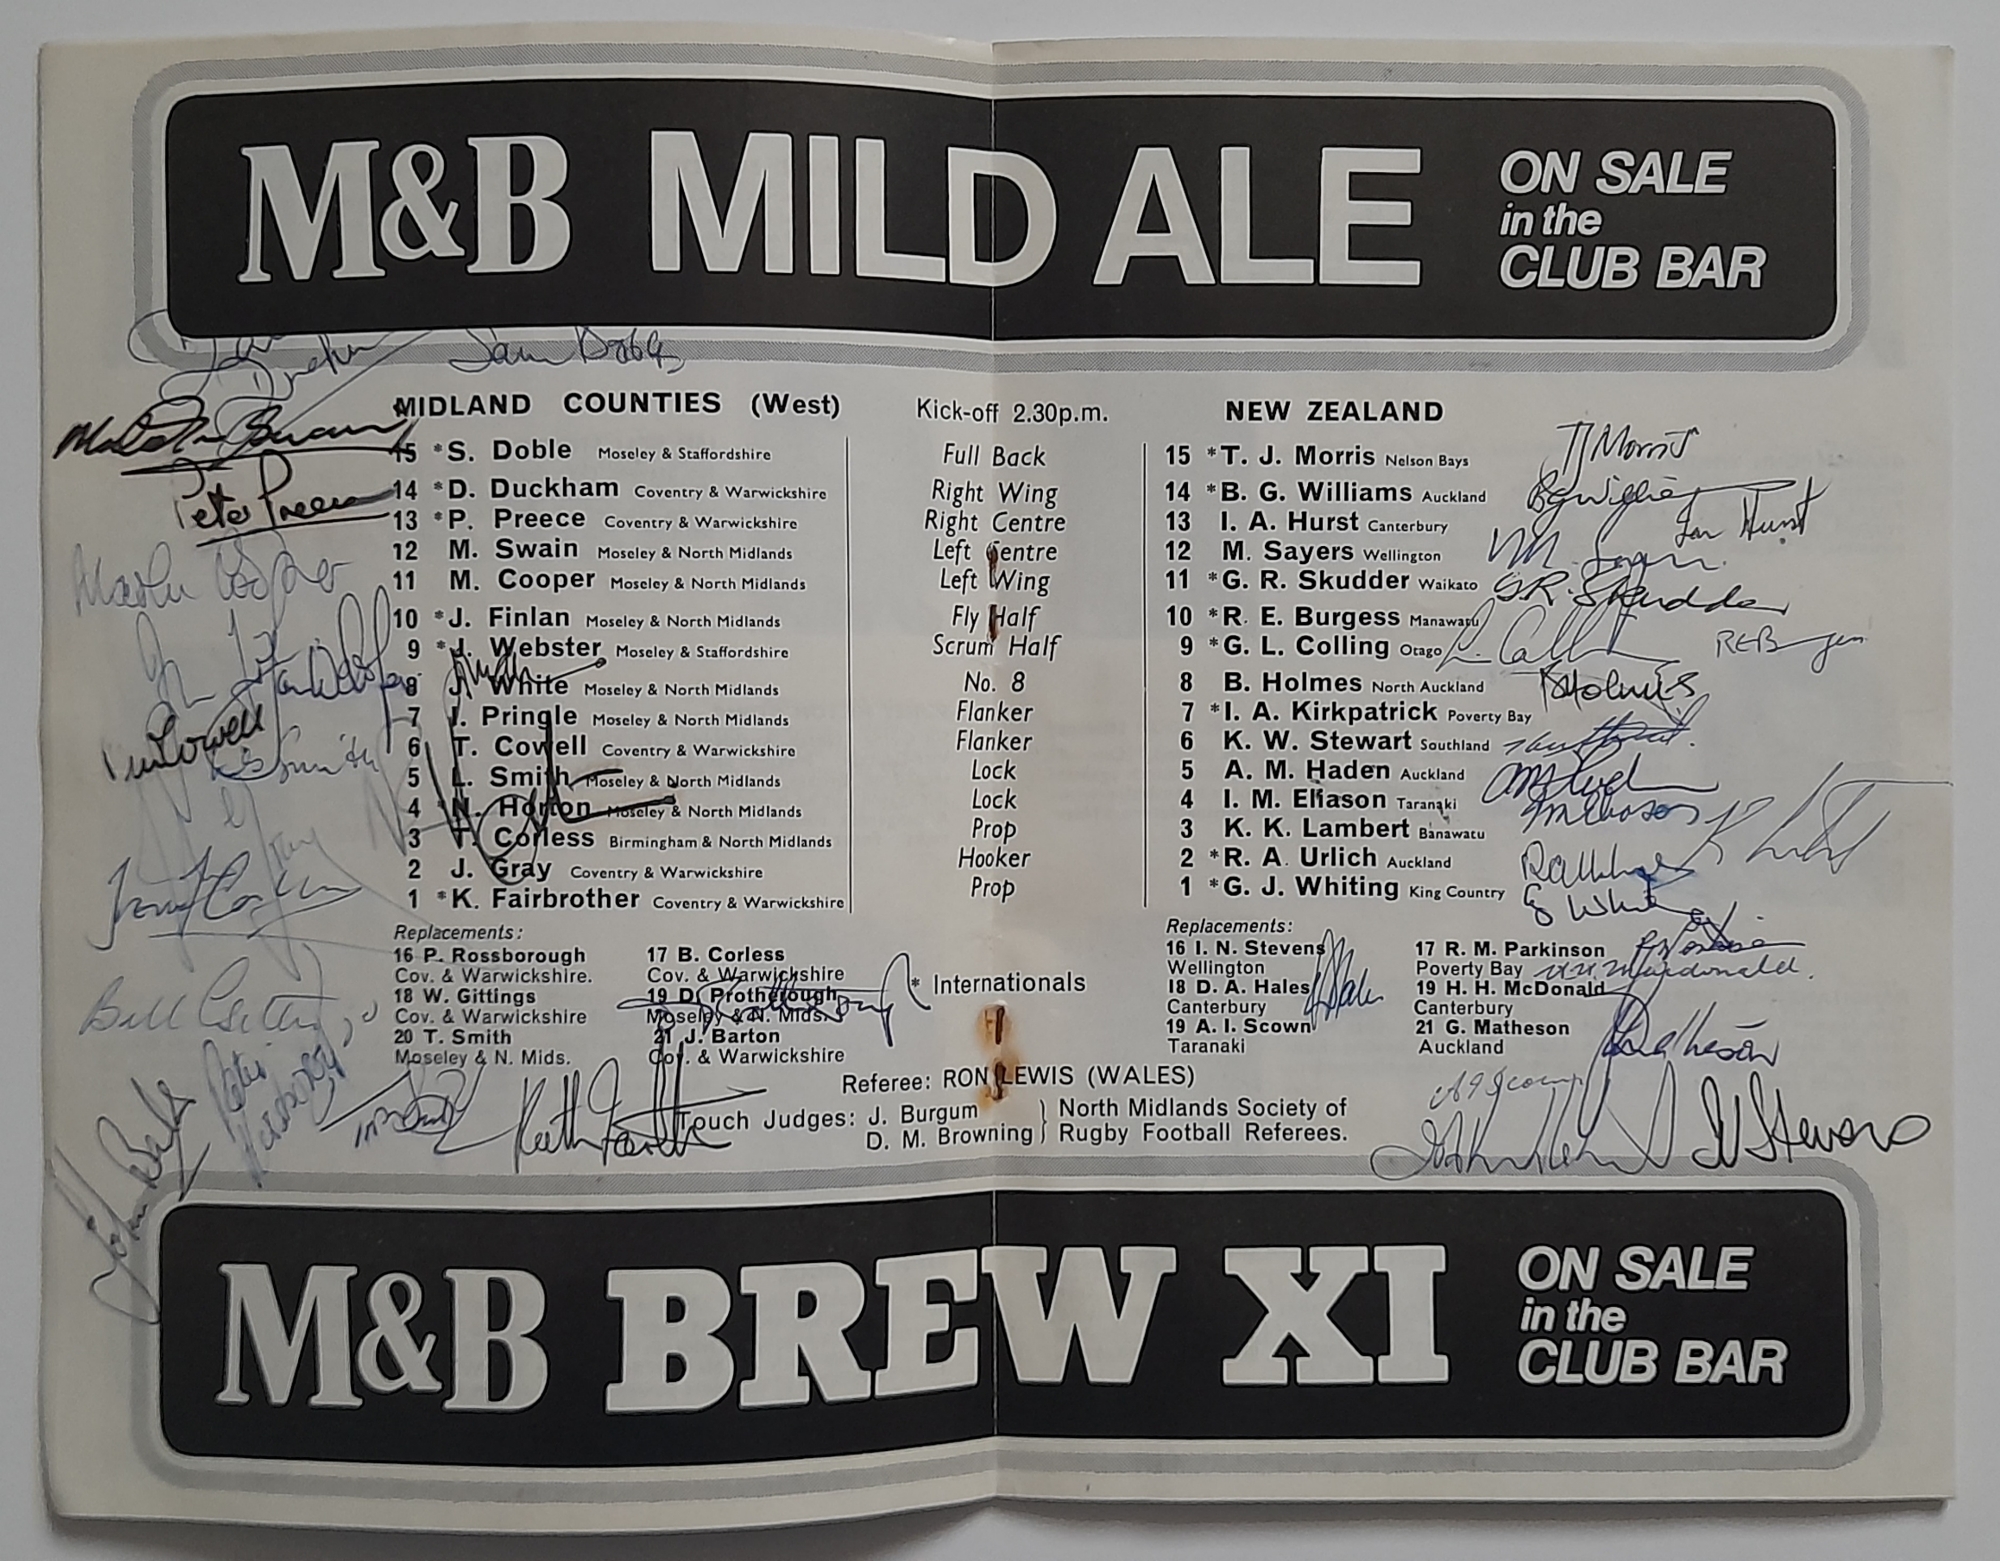 M&B MILD ALE ON SALE in the CLUB BAR
Sam Doble
MIDLAND COUNTIES (West) Kick-off 2.30p.m. NEW ZEALAND
15 *S. Doble Moseley & Staffordshire Full Back 15 *T. J. Morris Nelson Bays TJ Morris
14 *D. Duckham Coventry & Warwickshire Right Wing 14 *B. G. Williams Auckland
Peter Preece 13 *P. Preece Coventry & Warwickshire Right Centre 13 I. A. Hurst Canterbury Ian Hurst
12 M. Swain Moseley & North Midlands Left Centre 12 M. Sayers Wellington
11 M. Cooper Moseley & North Midlands Left Wing 11 *G. R. Skudder Waikato GR. Skudder
10 *J. Finlan Moseley & North Midlands Fly Half 10 *R. E. Burgess Manawatu
9 *J. Webster Moseley & Staffordshire Scrum Half 9 *G. L. Colling Otago REBurgess
8 J. White Moseley & North Midlands No. 8 8 B. Holmes North Auckland BHolmes
7 I. Pringle Moseley & North Midlands Flanker 7 *I. A. Kirkpatrick Poverty Bay
6 T. Cowell Coventry & Warwickshire Flanker 6 K. W. Stewart Southland
5 L. Smith Moseley & North Midlands Lock 5 A. M. Haden Auckland
4 *N. Horton Moseley & North Midlands Lock 4 I. M. Eliason Taranaki
3 T. Corless Birmingham & North Midlands Prop 3 K. K. Lambert Banawatu
2 J. Gray Coventry & Warwickshire Hooker 2 *R. A. Urlich Auckland
1 *K. Fairbrother Coventry & Warwickshire Prop 1 *G. J. Whiting King Country
Replacements: Replacements:
16 P. Rossborough 17 B. Corless 16 I. N. Stevens 17 R. M. Parkinson
Cov. & Warwickshire. Cov. & Warwickshire Wellington Poverty Bay
* Internationals
18 W. Gittings 19 D. Protherough 18 D. A. Hales 19 H. H. McDonald
Cov. & Warwickshire Moseley & N. Mids. Canterbury Canterbury
20 T. Smith 21 J. Barton 19 A. I. Scown 21 G. Matheson
Moseley & N. Mids. Cov. & Warwickshire Taranaki Auckland
Referee: RON LEWIS (WALES)
Touch Judges: J. Burgum North Midlands Society of
D. M. Browning Rugby Football Referees.
IN Stevens
M&B BREW XI ON SALE in the CLUB BAR